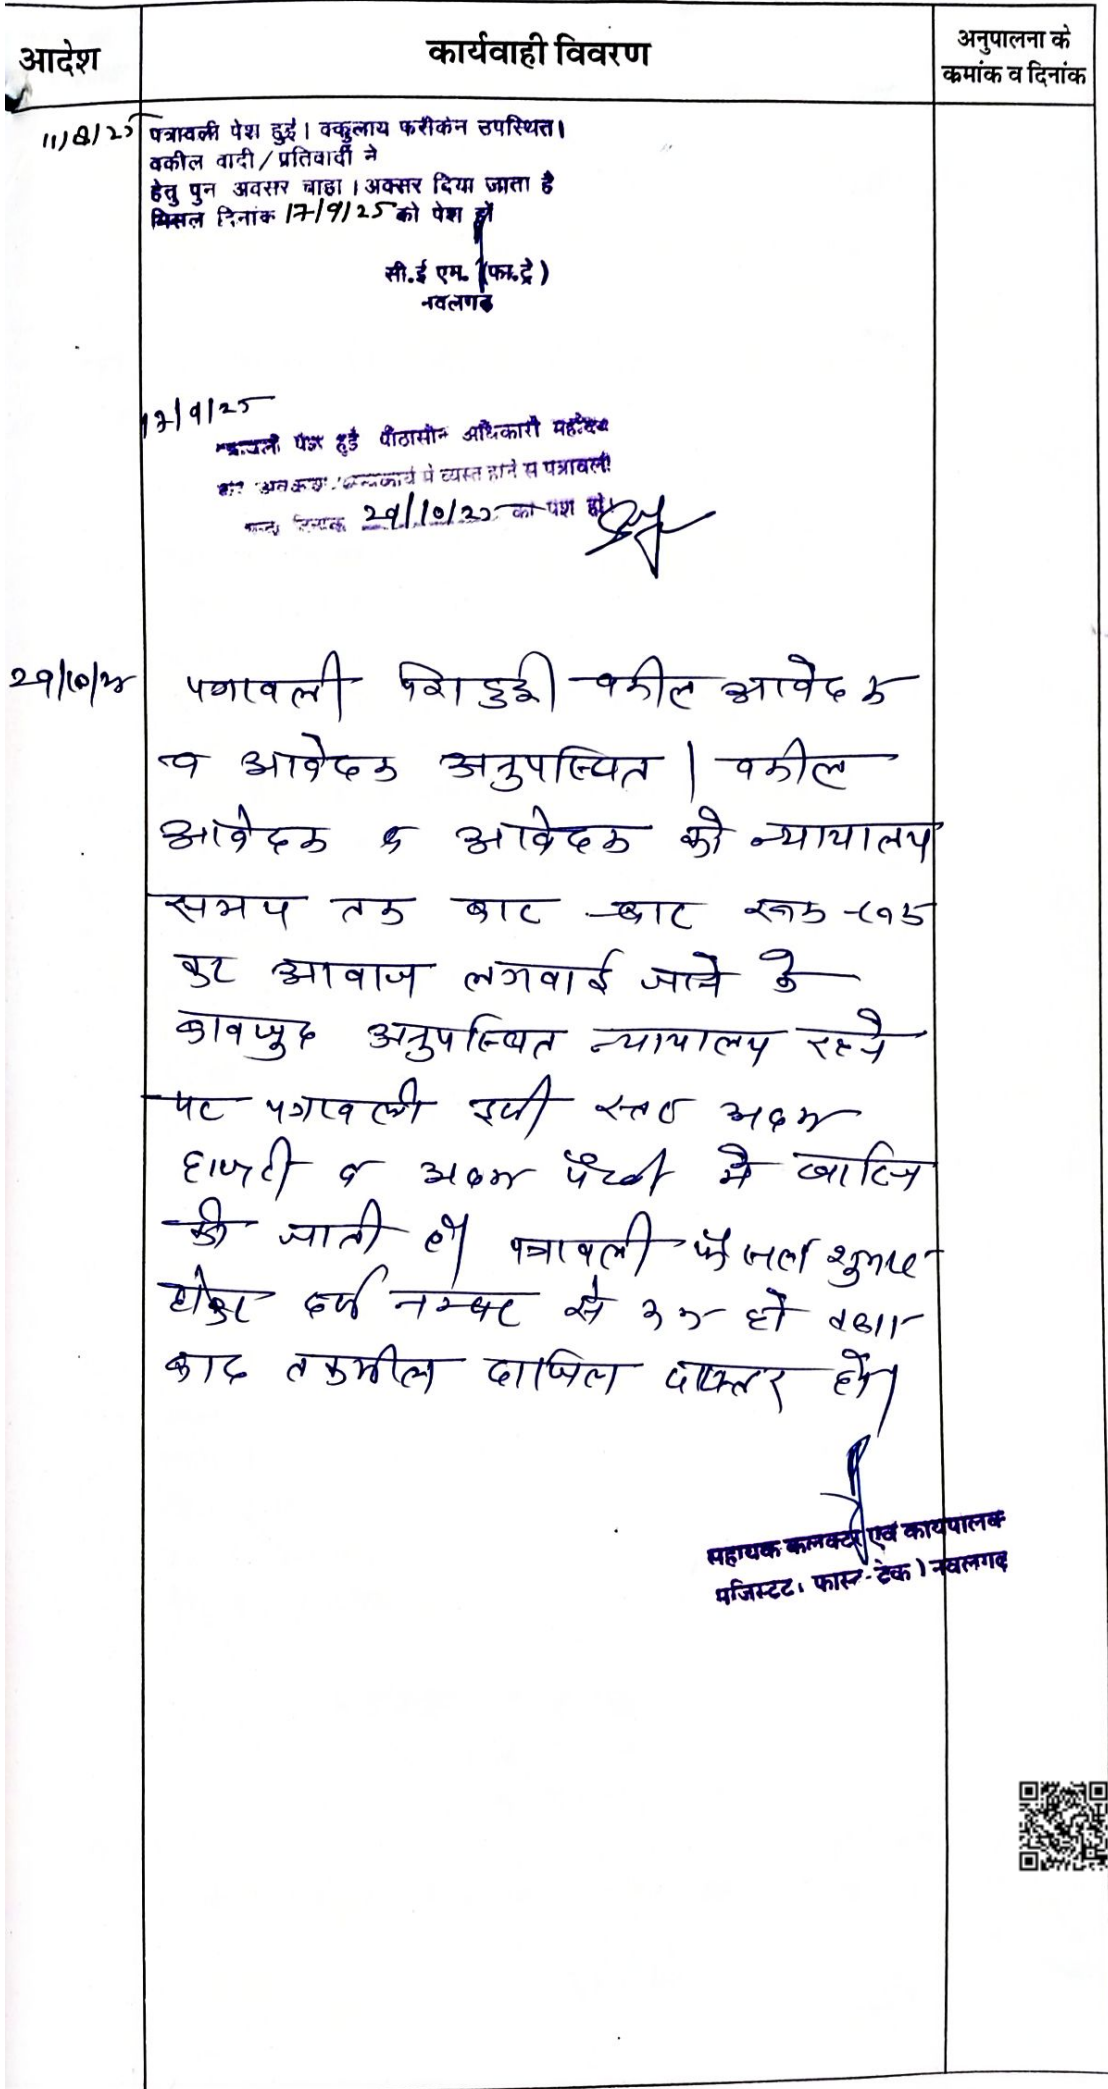 आदेश
कार्यवाही विवरण
अनुपालना के
कमांक व दिनांक
11/8/25 पत्रावली पेश हुई। वकुलाय फरीकेन उपस्थित।
वकील वादी/प्रतिवादी ने
हेतु पुन अवसर चाहा। अवसर दिया जाता है
मिसल दिनांक 17/9/25 को पेश हो
सी.ई एम. (फा.ट्रे)
नवलगढ
17/9/25
पत्रावली पेश हुई पीठासीन अधिकारी महोदय
के व्यस्त होने से पत्रावली
दिनांक 29/10/25 को पेश हो
29/10/25 पत्रावली पेश हुई। वकील आवेदक
व आवेदक अनुपस्थित। वकील
आवेदक व आवेदक को न्यायालय
समय तक बार-बार रूक-रूक
कर आवाज लगवाई जाने के
बावजुद अनुपस्थित न्यायालय रहने
पर पत्रावली इसी स्तर अदम
हाजरी व अदम पैरवी में खारिज
की जाती है। पत्रावली फैसल शुमार
होकर दर्ज नम्बर से कम हो तथा
बाद तकमील दाखिल दफ्तर हो।
सहायक कलक्टर एवं कार्यपालक
मजिस्ट्रेट (फास्ट-ट्रेक) नवलगढ